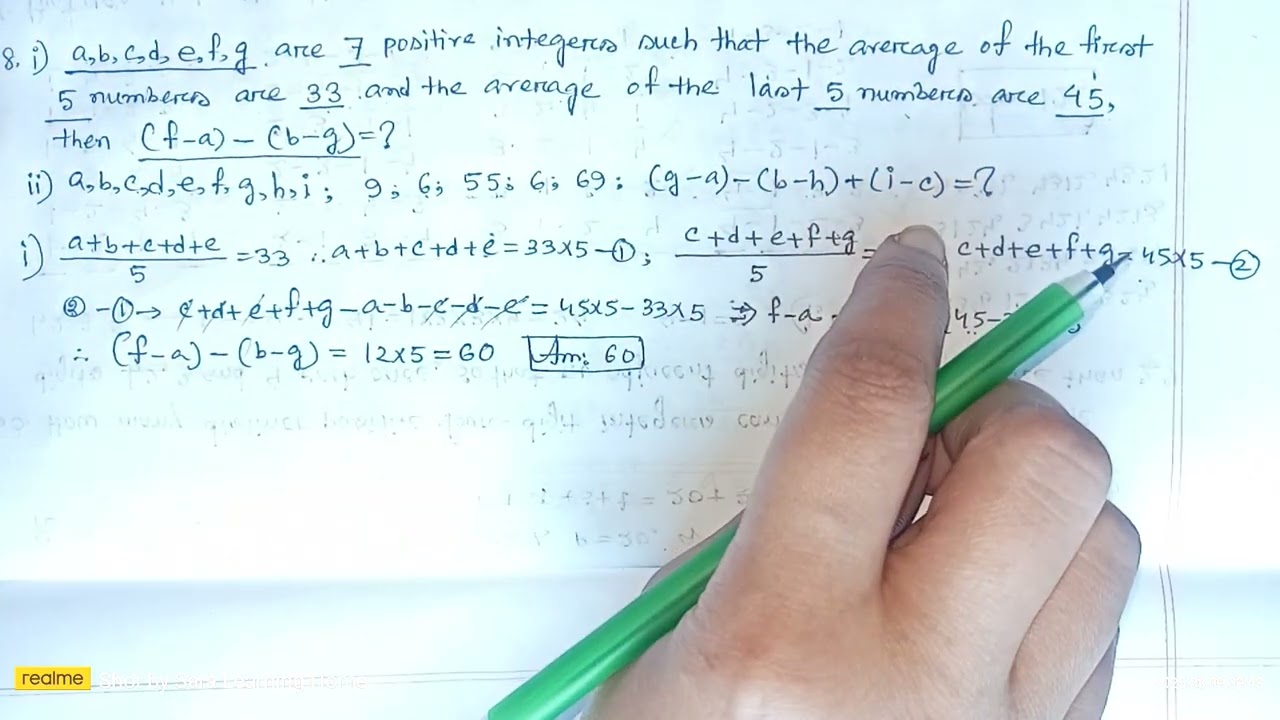 8. i) a,b,c,d,e,f,g are 7 positive integers such that the average of the first
5 numbers are 33 and the average of the last 5 numbers are 45,
then (f-a) - (b-g) = ?
ii) a,b,c,d,e,f,g,h,i ; 9; 6; 55; 6; 69; (g-a)-(b-h)+(i-c)=?
i) (a+b+c+d+e)/5 = 33 ∴ a+b+c+d+e = 33×5 –①; (c+d+e+f+g)/5 = c+d+e+f+g = 45×5 –②
② -① → c+d+e+f+g-a-b-c-d-e = 45×5-33×5 ⇒ f-a (45-
∴ (f-a) - (b-g) = 12×5 = 60 Ans: 60
realme Shot by Learning Home